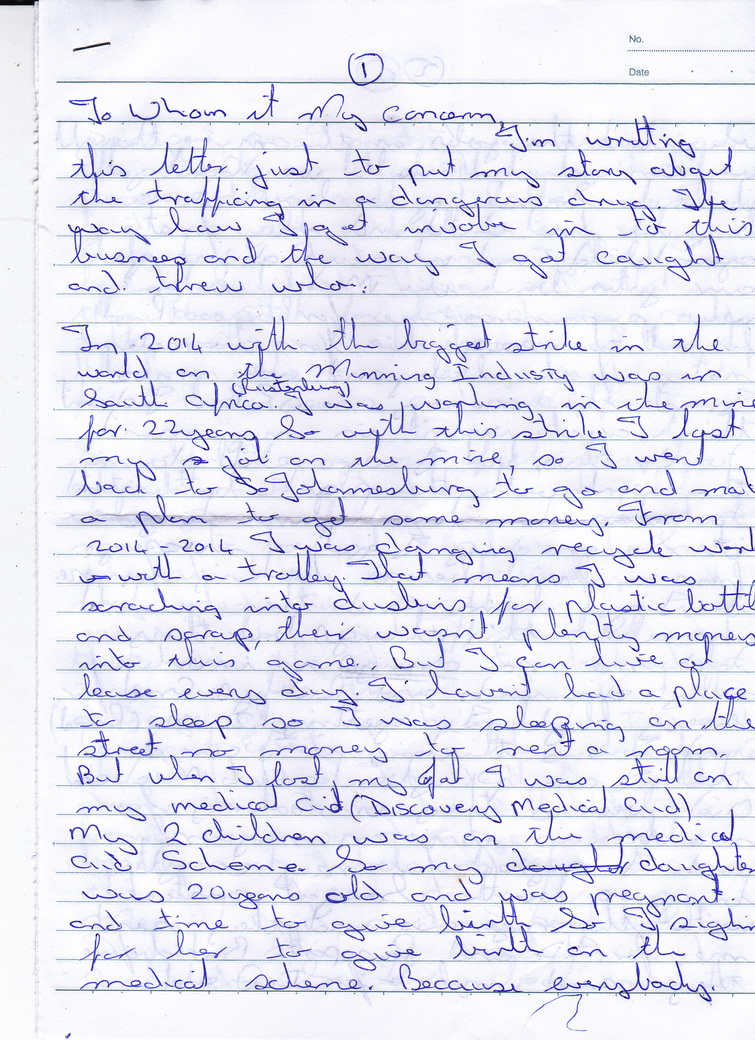 No.
①
Date
To Whom it My Concern,
I'm writting
this letter just to put my story about
the trafficing in a dangerous drug. The
way how I get involve in to this
busness and the way I got caught
and threw who.
In 2014 with the biggest strike in the
world on the Minning Industry was in
(Rustenburg)
South Africa. I was working in the mine
for 22years So with this strike I lost
my job on the mine, so I went
back to Johannesburg to go and mak
a plan to get some money. From
2014-2014 I was doing recycle work
with a trolley. That means I was
scraching into dusbins for plastic bottl
and scrap, their wasn't plenty moneys
into this game. But I can live at
lease every day. I havent had a place
to sleep so I was sleeping on the
street no money to rent a room.
But when I lost my job I was still on
my medical aid (Discovery Medical Aid)
My 2 children was on the medical
aid Scheme. So my daughter daughter
was 20years old and was pregnant.
and time to give birth So I sighn
for her to give birth on the
medical scheme. Because everybody.